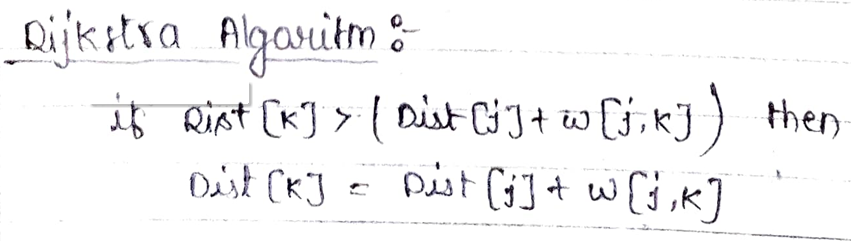 Dijkstra Algoritm :-
if Dist [K] > ( Dist [j] + w [j,K] ) then
Dist [K] = Dist [j] + w [j,K]